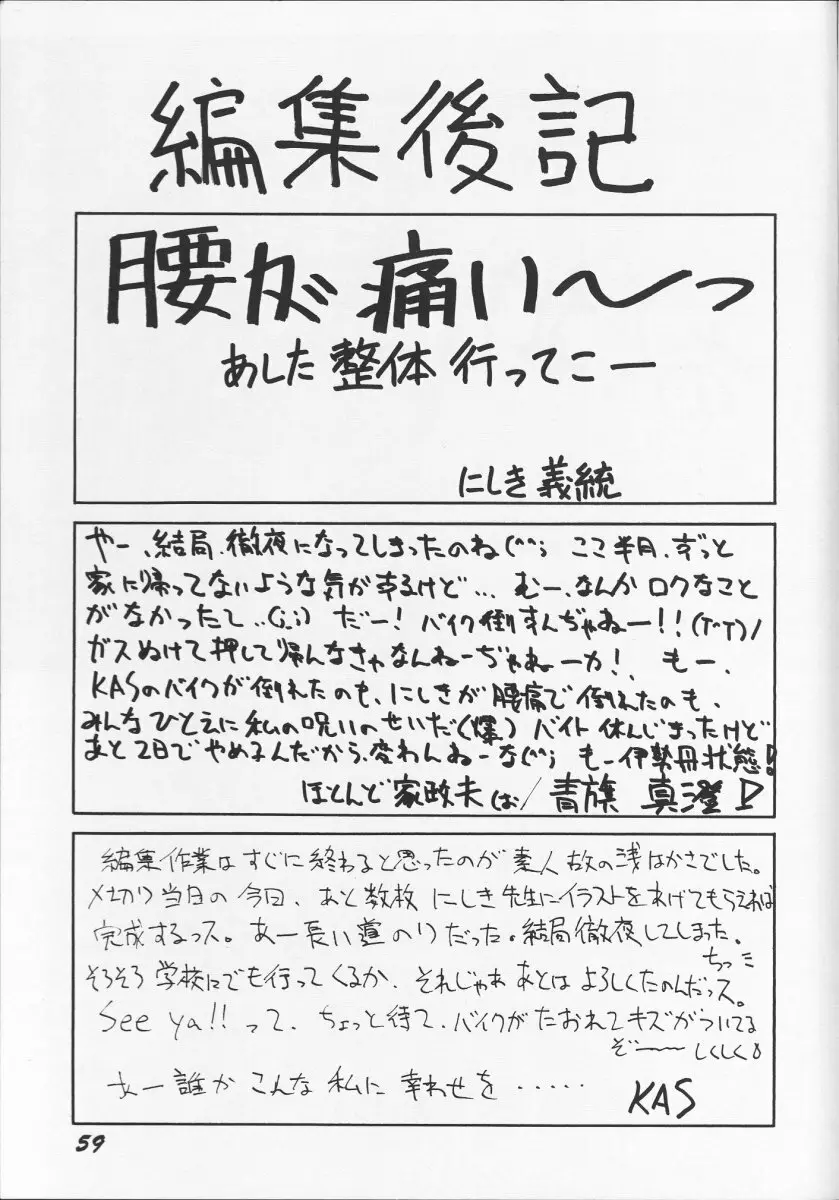 編集後記
腰が痛い～っ
あした整体行ってこー
にしき義統
やー、結局、徹夜になってしまったのね(^^; ここ半月、ずっと
家に帰ってないような気がするけど… むー、なんかロクなこと
がなかったて..(;_;) だー! バイク倒すんぢゃねー!!(T^T)ノ
ガスぬけて押して帰んなきゃなんねーぢゃねーカ! もー、
KASのバイクが倒れたのも、にしきが腰痛で倒れたのも、
みんなひとえに私の呪いのせいだ(爆) バイト休んじまったけど
あと2日でやめるんだから、変わんねーな(^^; もー伊勢丹状態!
ほとんど家政夫(お/青旗 真澄
編集作業はすぐに終わると思ったのが素人故の浅はかさでした。
〆切り当日の今日、あと数枚にしき先生にイラストをあげてもらえれば
完成するっス。あー長い道のりだった。結局徹夜してしまった。
ちっミ
そろそろ学校にでも行ってくるか、それじゃあ あとは よろしくたのんだっス。
See ya!! って、ちょっと待て、バイクがたおれてキズがついてる
ぞ~~ しくしく
あー誰か こんな 私に 幸わせを・・・・・
KAS
59